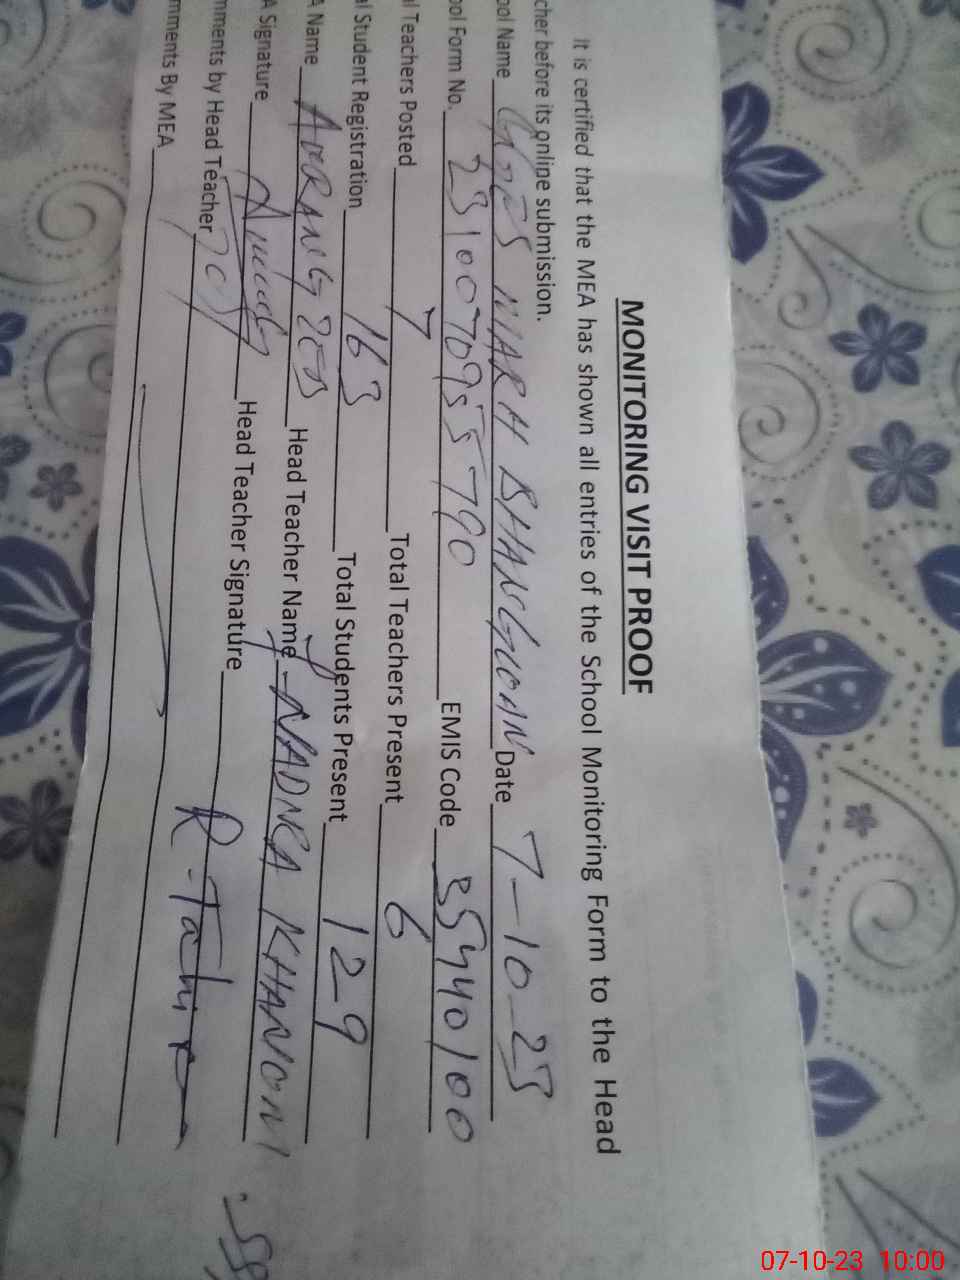 MONITORING VISIT PROOF
It is certified that the MEA has shown all entries of the School Monitoring Form to the Head
cher before its online submission.
ool Name WARH BHANGUOAN Date 7-10-23
ool Form No. 2310070955790 EMIS Code 35440100
al Teachers Posted 7 Total Teachers Present 6
al Student Registration 163 Total Students Present 129
A Name AURANGZEB Head Teacher Name NADRA KHANOM
A Signature Head Teacher Signature R-Tahir
mments by Head Teacher
mments By MEA
07-10-23 10:00